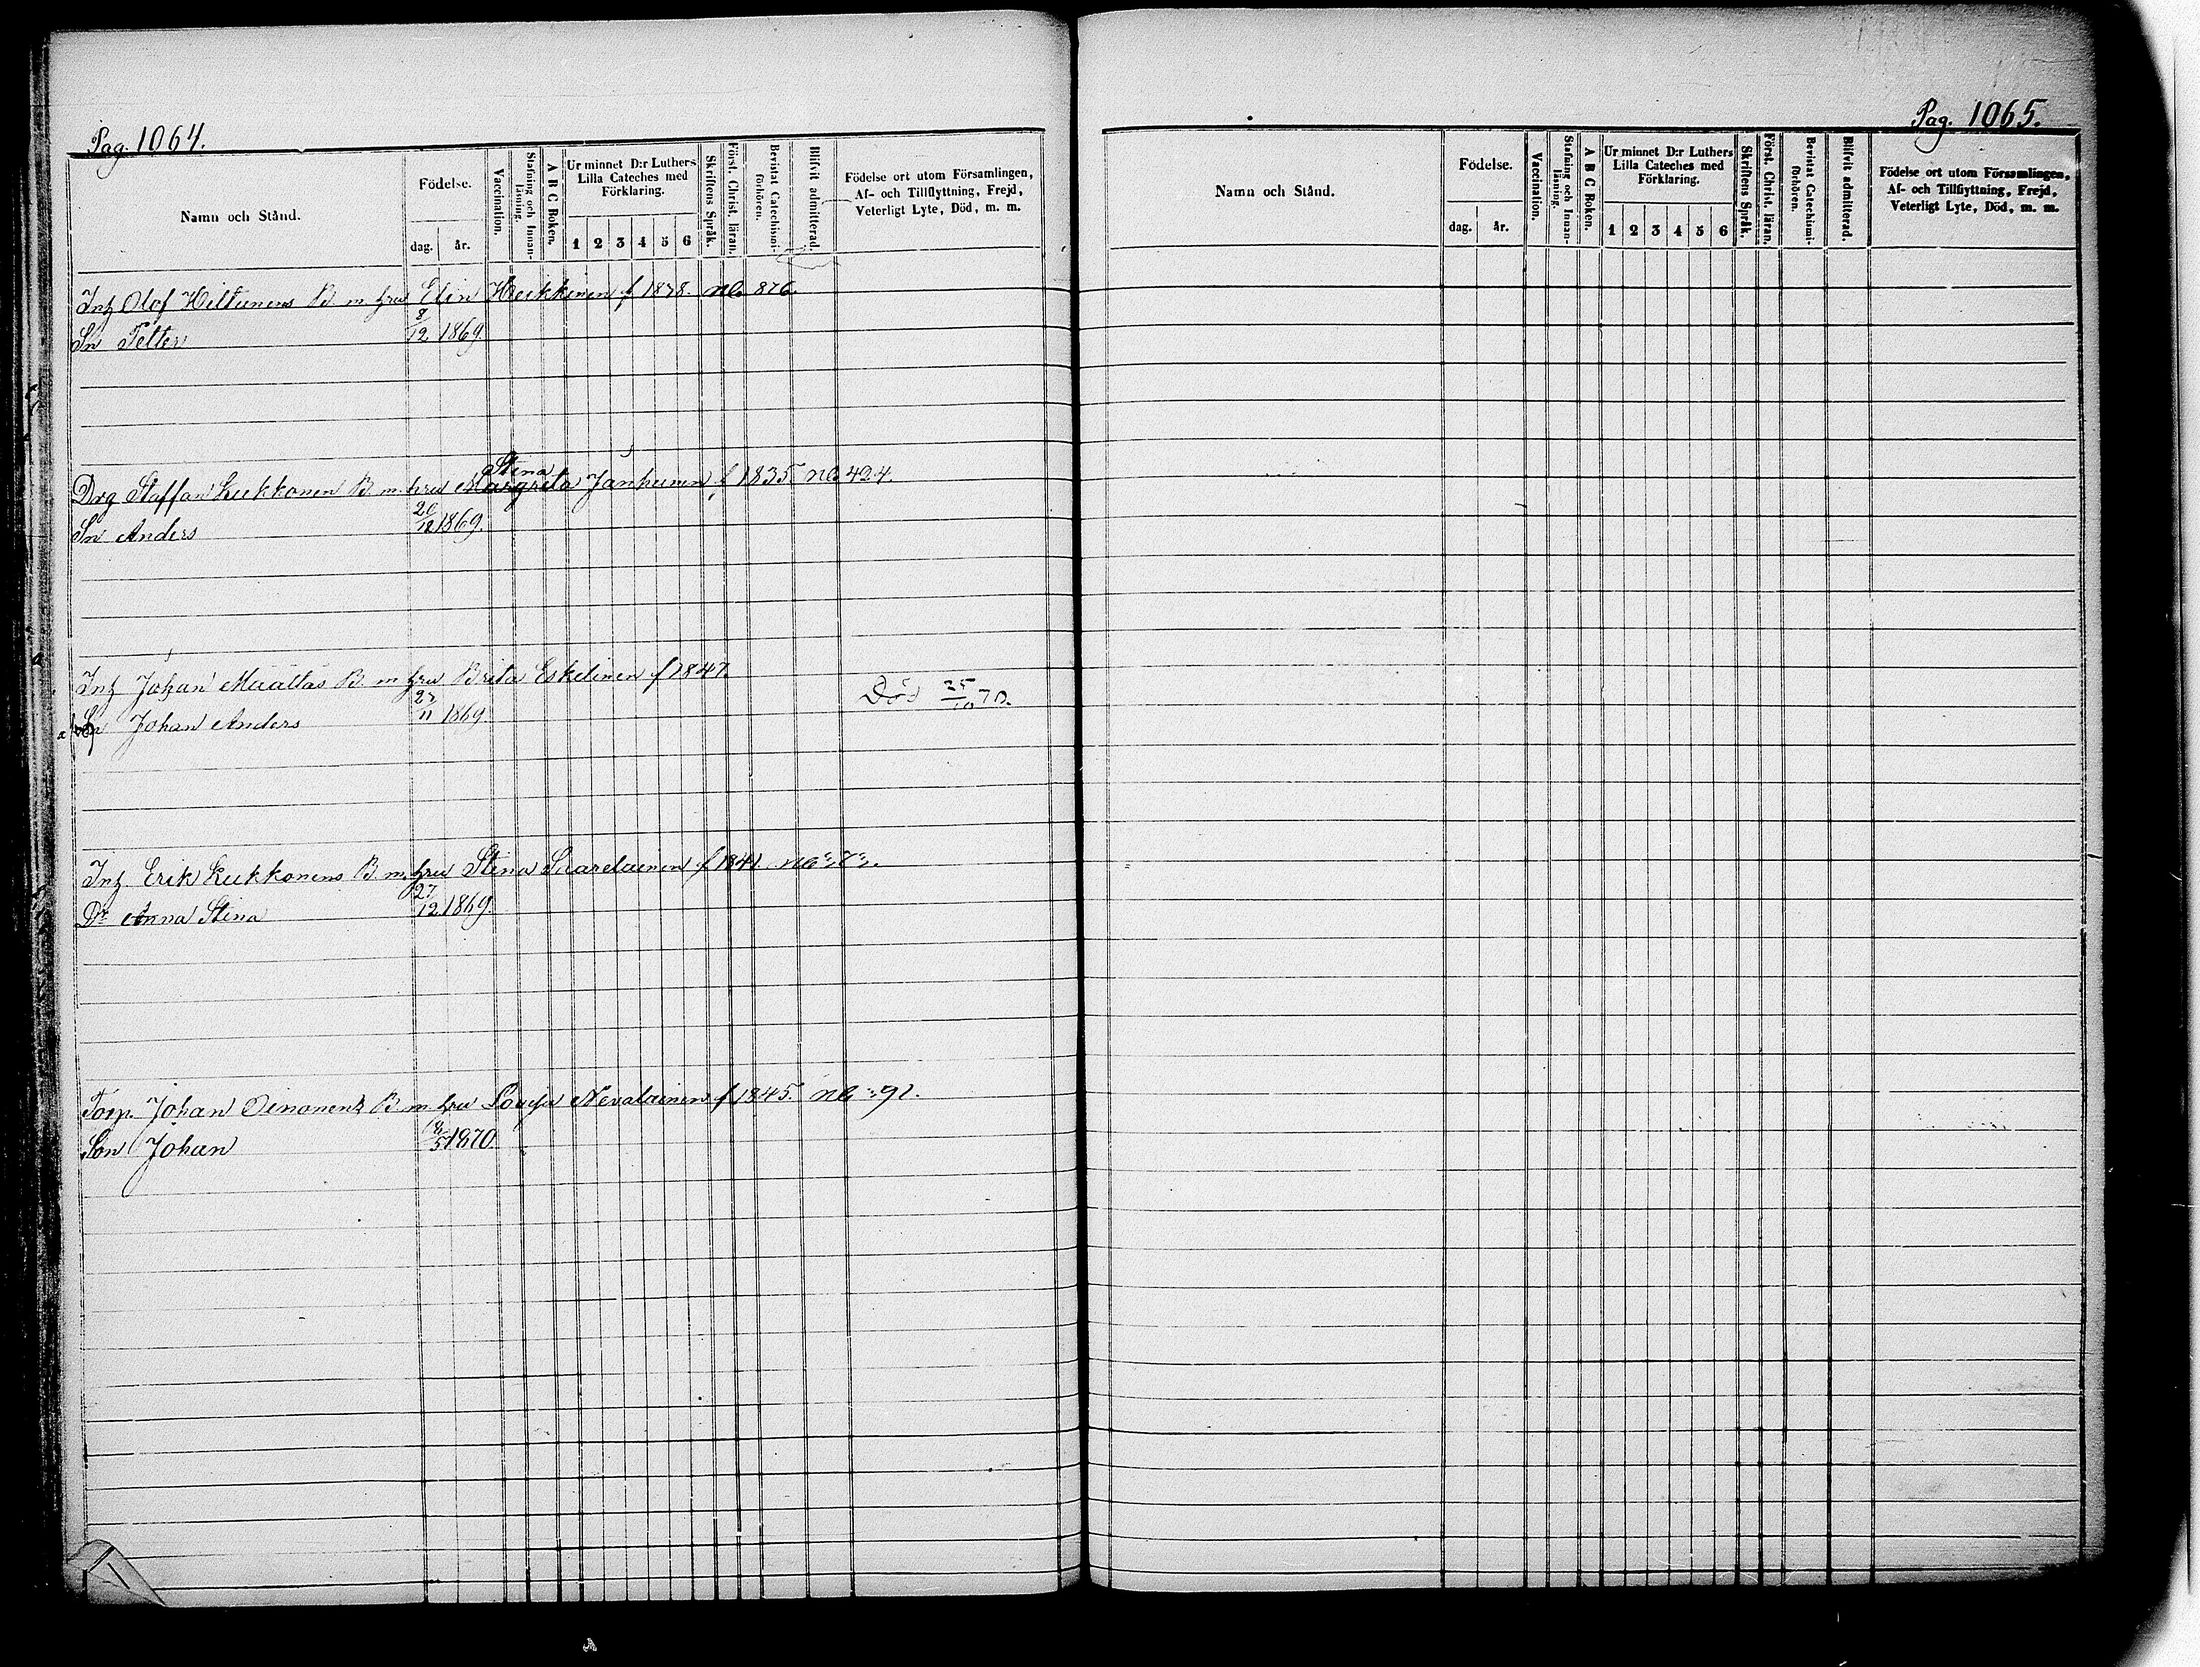 Pag. 1064.
Namn och Stånd.
Födelse.
dag. år.
Vaccination.
Stafning och Innanläsning.
A B C Boken.
Ur minnet D:r Luthers Lilla Cateches med Förklaring.
1 2 3 4 5 6
Skriftens Språk.
Först. Christ. läran.
Bevistat Catechismiförhören.
Blifvit admitterad.
Födelse ort utom Församlingen, Af- och Tillflyttning, Frejd, Veterligt Lyte, Död, m. m.
Inh Olof Hiltunens B m hru Elin Heikkinen f 1838. No 876.
Sn Petter 8/12 1869.
Stina
Drg Staffan Lukkonen B m hru Margreta Janhunen f 1835 No 424.
Sn Anders 20/12 1869.
Inh Johan Määttäs B m hru Brita Eskelinen f 1847.
Sn Johan Anders 27/11 1869 Död 25/10 70.
Inh. Erik Lukkonens B m. hru Stina Saarelainen f 1841.
Dr Anna Stina 27/12 1869.
Torp. Johan Oinonens B m hru Lovisa Nevalainen f 1845.
Son Johan 18/5 1870.
Pag. 1065.
Namn och Stånd.
Födelse.
dag. år.
Vaccination.
Stafning och Innanläsning.
A B C Boken.
Ur minnet D:r Luthers Lilla Cateches med Förklaring.
1 2 3 4 5 6
Skriftens Språk.
Först. Christ. läran.
Bevistat Catechismiförhören.
Blifvit admitterad.
Födelse ort utom Församlingen, Af- och Tillflyttning, Frejd, Veterligt Lyte, Död, m. m.